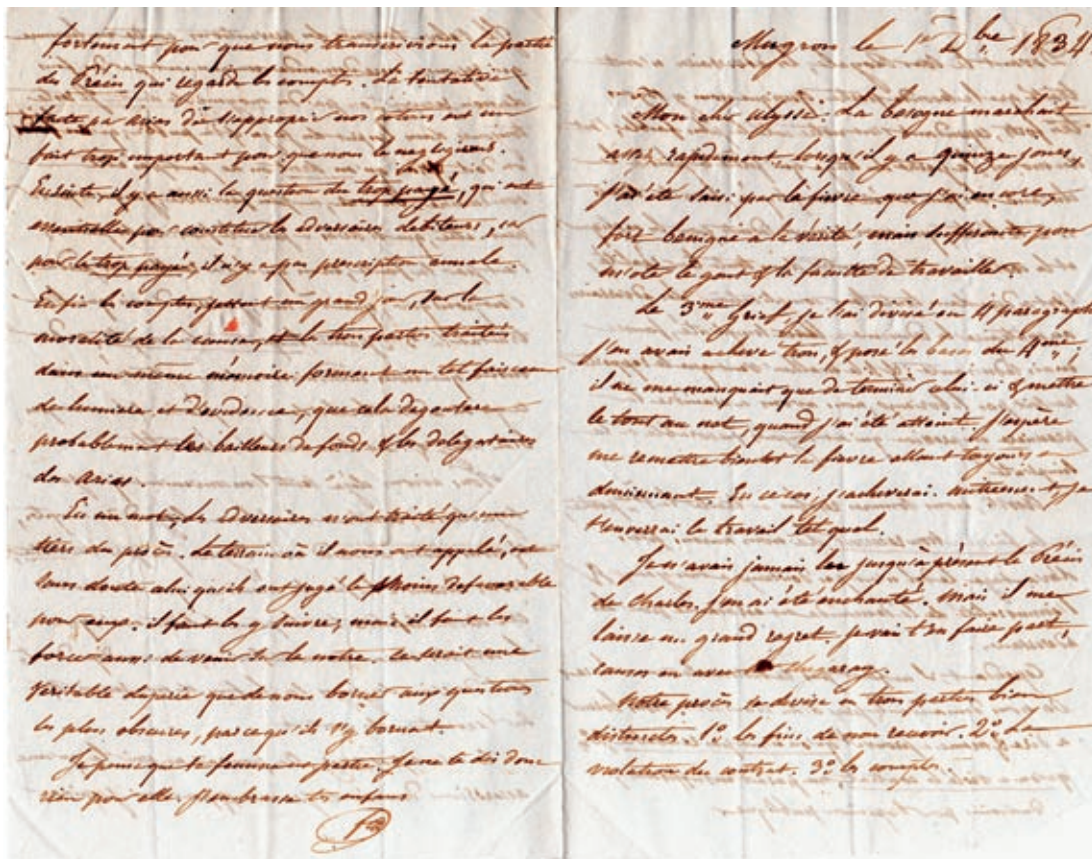 fortement pour que nous transcrivions la partie
du Précis qui regarde les comptes. La tentative
faite par Arias de s'approprier nos cotons est un
fait trop important pour que nous le négligions.
Ensuite, il y a aussi la question du trop payé, qui est
essentielle pour constituer les adversaires débiteurs, car
pour le trop payé il n'y a pas prescription annale.
Enfin les comptes, jettent un grand jour, sur la
moralité de la cause, et les trois parties traitées
dans un même mémoire forment un tel faisceau
de lumière et d'évidence, que cela dégoutera
probablement les bailleurs de fonds & les délégataires
des Arias.
En un mot, les adversaires n'ont traité qu'un
tiers du procès. Le terrain où il nous ont appelé, est
sans doute celui qu'ils ont jugé le moins défavorable
pour eux. il faut les y suivre; mais il faut les
forcer aussi de venir sur le notre. ce serait une
véritable duperie que de nous borner aux questions
les plus obscures, parce qu'ils s'y bornent.
Je pense que ta femme est partie. Je ne te dis donc
rien pour elle. J'embrasse tes enfans
Mugron le 1er Xbre 1834
Mon cher Ulysse. La besogne marchait
assez rapidement, lorsqu'il y a quinze jours,
j'ai été saisi par la fièvre que j'ai encore,
fort bénigne à la vérité, mais suffisante pour
m'oter le gout & la faculté de travailler.
Le 3me Grief, je l'ai divisé en 4 paragraphes
j'en avais achevé trois, & posé les bases du 4me;
il ne me manquait que de terminer celui-ci & mettre
le tout au net, quand j'ai été atteint. J'espère
me remettre bientot la fièvre allant toujours en
diminuant. En ce cas, j'acheverai. autrement je
t'enverrai le travail tel quel.
Je n'avais jamais lu jusqu'à présent le Précis
de Charles. J'en ai été enchanté. Mais il me
laisse un grand regret. je vais t'en faire part
causes en avec
Notre procès se divise en trois parties bien
distinctes. 1° les fins de non recevoir. 2° La
violation du contrat. 3° les comptes.